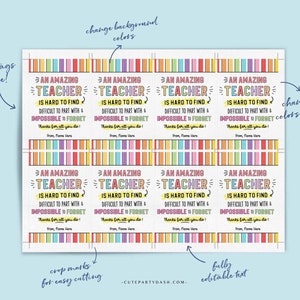 change background
colors
AN AMAZING AN AMAZING AN AMAZING AN AMAZING
TEACHER TEACHER TEACHER TEACHER
IS HARD TO FIND IS HARD TO FIND IS HARD TO FIND IS HARD TO FIND
DIFFICULT TO PART WITH & DIFFICULT TO PART WITH & DIFFICULT TO PART WITH & DIFFICULT TO PART WITH &
IMPOSSIBLE TO FORGET IMPOSSIBLE TO FORGET IMPOSSIBLE TO FORGET IMPOSSIBLE TO FORGET
thanks for all you do! thanks for all you do! thanks for all you do! thanks for all you do!
From, Fiona Viera From, Fiona Viera From, Fiona Viera From, Fiona Viera
AN AMAZING AN AMAZING AN AMAZING AN AMAZING
TEACHER TEACHER TEACHER TEACHER
IS HARD TO FIND IS HARD TO FIND IS HARD TO FIND IS HARD TO FIND
DIFFICULT TO PART WITH & DIFFICULT TO PART WITH & DIFFICULT TO PART WITH & DIFFICULT TO PART WITH &
IMPOSSIBLE TO FORGET IMPOSSIBLE TO FORGET IMPOSSIBLE TO FORGET IMPOSSIBLE TO FORGET
thanks for all you do! thanks for all you do! thanks for all you do! thanks for all you do!
From, Fiona Viera From, Fiona Viera From, Fiona Viera From, Fiona Viera
crop marks
for easy cutting
fully
editable text
-CUTEPARTYDASH.COM-